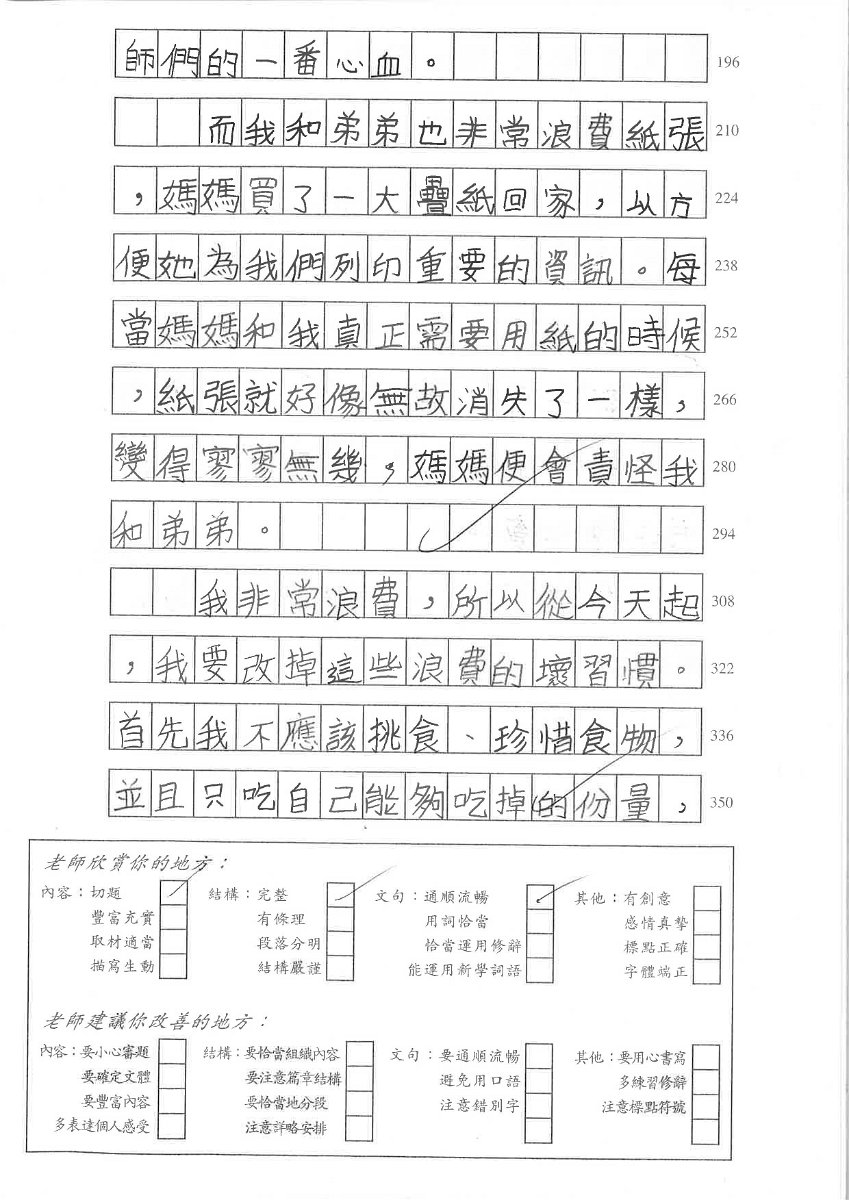 師們的一番心血。 196
而我和弟弟也非常浪費紙張 210
，媽媽買了一大疊紙回家，以方 224
便她為我們列印重要的資訊。每 238
當媽媽和我真正需要用紙的時候 252
，紙張就好像無故消失了一樣， 266
變得寥寥無幾，媽媽便會責怪我 280
和弟弟。 294
我非常浪費，所以從今天起 308
，我要改掉這些浪費的壞習慣。 322
首先我不應該挑食、珍惜食物， 336
並且只吃自己能夠吃掉的份量， 350
老師欣賞你的地方：
內容：切題 結構：完整 文句：通順流暢 其他：有創意
豐富充實 有條理 用詞恰當 感情真摯
取材適當 段落分明 恰當運用修辭 標點正確
描寫生動 結構嚴謹 能運用新學詞語 字體端正
老師建議你改善的地方：
內容：要小心審題 結構：要恰當組織內容 文句：要通順流暢 其他：要用心書寫
要確定文體 要注意篇章結構 避免用口語 多練習修辭
要豐富內容 要恰當地分段 注意錯別字 注意標點符號
多表達個人感受 注意詳略安排